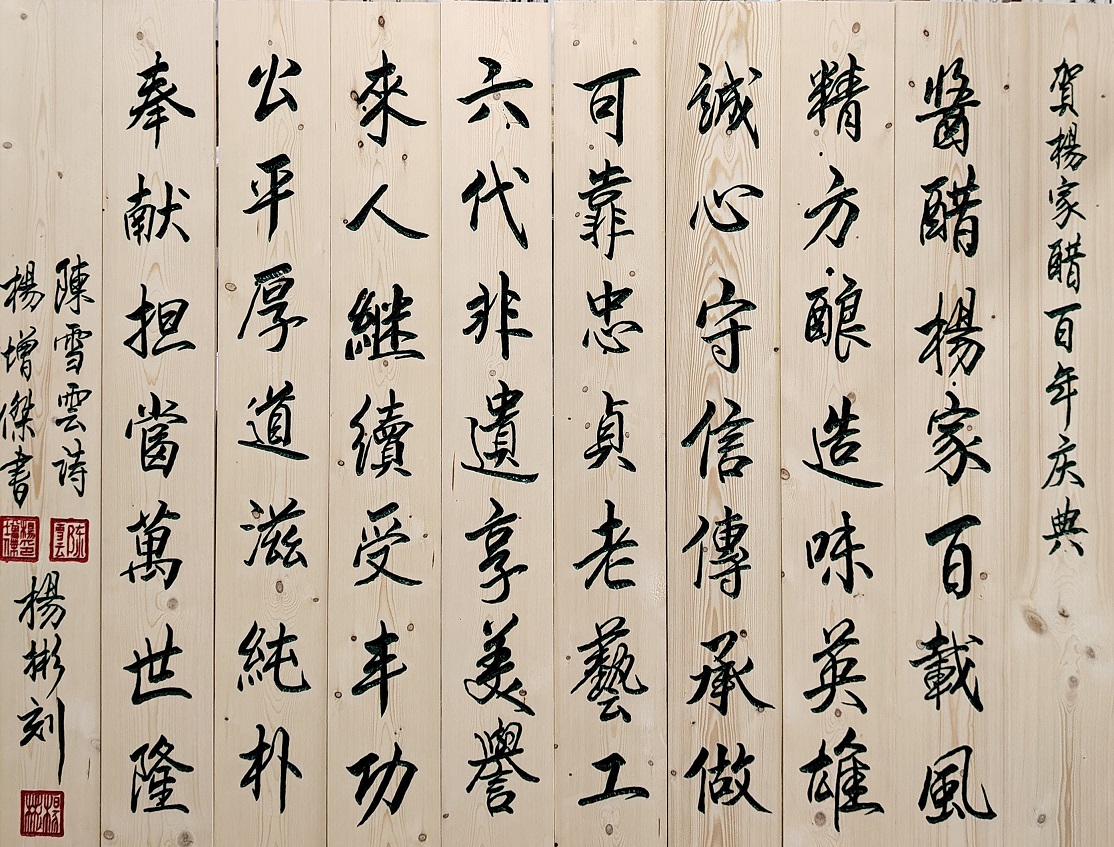 賀楊家醋百年庆典
醬醋楊家百載風
精方釀造味英雄
誠心守信傳承做
可靠忠贞老藝工
六代非遺享美譽
來人継續受丰功
公平厚道滋純朴
奉献担當萬世隆
陳雪雲詩
楊增傑書
楊彬刻